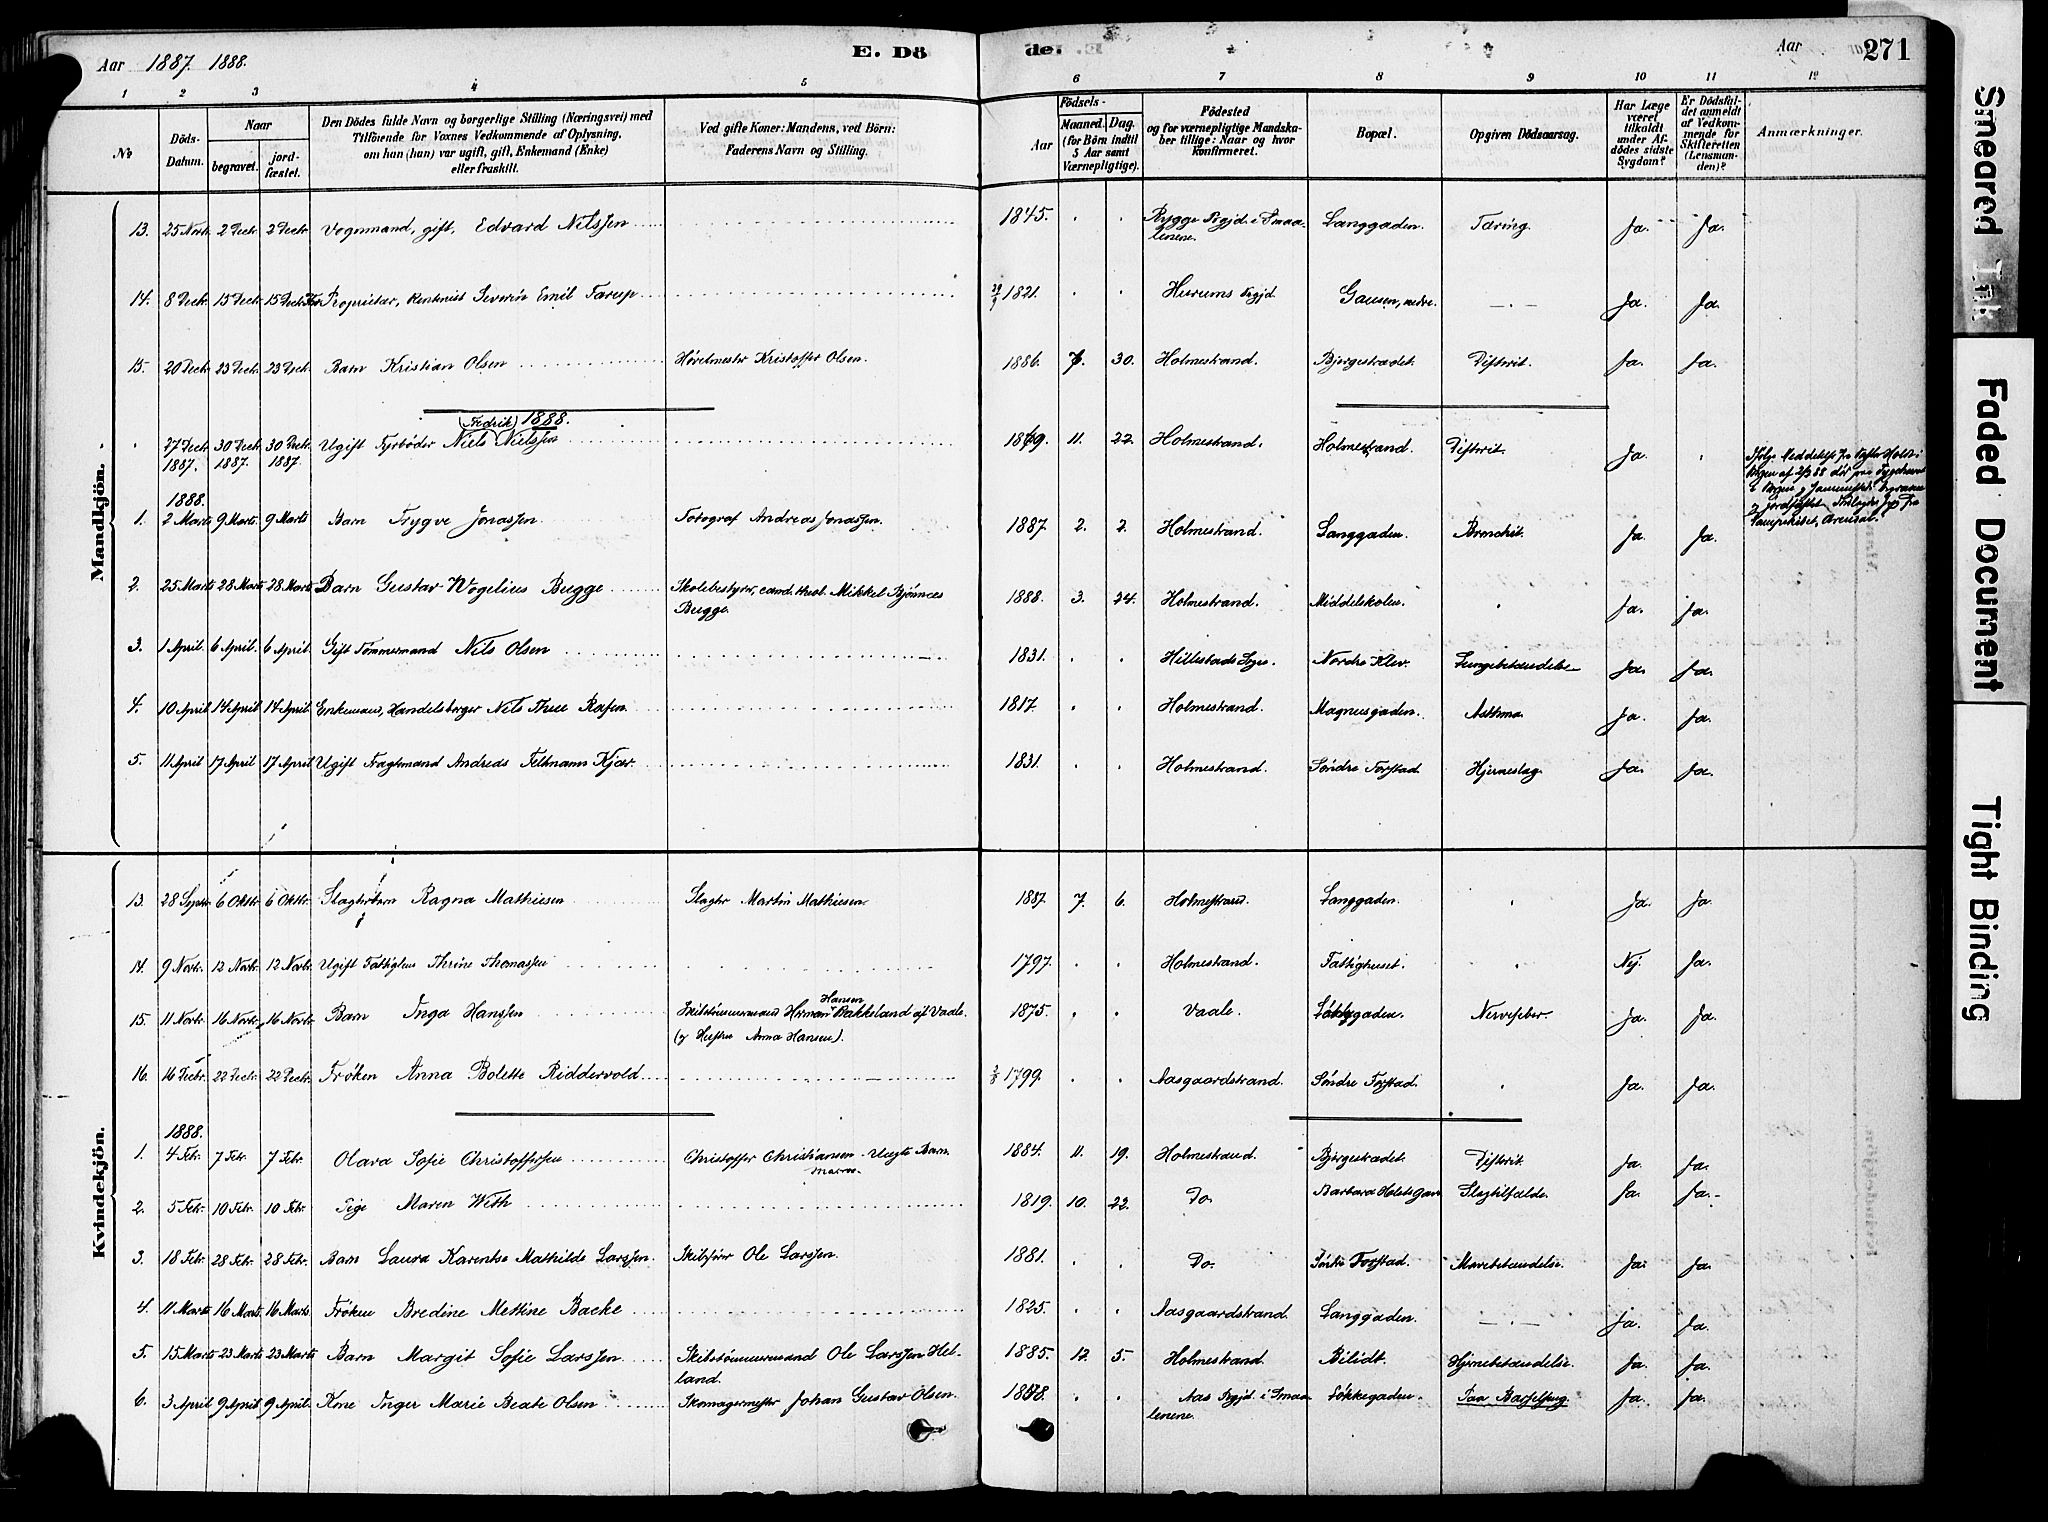 Aar 1887. 1888. E. Dö de. Aar 271
1 2 3 4 5 6 7 8 9 10 11 12
No
Döds-Datum.
Naar
begravet.
jord-fæstet.
Den Dödes fulde Navn og borgerlige Stilling (Næringsvei) med
Tilföiende for Voxnes Vedkommende af Oplysning,
om han (hun) var ugift, gift, Enkemand (Enke)
eller fraskilt.
Ved gifte Koner: Mandens, ved Börn:
Faderens Navn og Stilling.
Födsels-
Aar
Maaned. Dag.
(for Börn indtil
5 Aar samt
Værnepligtige).
Födested
og for værnepligtige Mandska-
ber tillige: Naar og hvor
konfirmeret.
Bopæl.
Opgiven Dödsaarsag.
Har Læge
været
tilkaldt
under Af-
dödes sidste
Sygdom?
Er Dödsfal-
det anmeldt
af Vedkom-
mende for
Skifteretten
(Lensman-
den)?
Anmærkninger.
Mandkjön.
13. 25 Novbr. 2 Decbr. 2 Decbr. Vognmand, gift, Edvard Nilssen 1845. Rygge Prgjd. i Smaa-
lenene. Langgaden. Tæring. Ja. Ja.
14. 8 Decbr. 15 Decbr. 15 Decbr. Proprietær, Rentenist Severin Emil Tarup 1821. Hurums Prgjd. Gausen, nedre. Ja. Ja.
15. 20 Decbr. 23 Decbr. 23 Decbr. Barn Kristian Olsen Kristoffer Olsen. 1886 7. 30. Holmestrand. Bjergestrædet. Difterit. Ja. Ja.
1888.
27 Decbr. 1887. 30 Decbr. 1887. 30 Decbr. 1887. Ugift Fyrbøder (Fredrik) Niels Nielssen 11. 22. Holmestrand. Holmestrand. Difterit. Ja.
1888.
1. 2 Marts 9 Marts. 9 Marts Barn Trygve Jonassen. Fotograf Andreas Jonassen. 1887. 2. 2. Holmestrand. Langgaden. Bronchit. Ja. Ja.
2. 25 Marts 28 Marts 28 Marts Barn Gustav Wogelius Bugge Skolebestyrer, cand. theol. Mikkel Bjønnes
Bugge. 1888. 3. 24. Holmestrand. Middelskolen. Ja. Ja.
3. 1 April. 6 April. 6 April. Gift Tømmermand Nils Olsen 1831. Hillestads Sogn. Nordre Klev. Lungebetændelse Ja. Ja.
4. 10 April 14 April. 14 April. Enkemand, Handelsborger Nils Thue Rafen. 1817. Holmestrand. Magnusgaden. Asthma. Ja. Ja.
5. 11 April 17 April 17 April Ugift Fragtemand Andreas Feltmann Kjær. 1831. Holmestrand. Søndre Forstad. Hjerneslag. Ja. Ja.
Kvindekjön.
13. 28 Septbr. 6 Oktbr. 6 Oktbr. Slagterbarn Ragna Mathiesen Slagter Martin Mathiesen. 1887. 7. 6. Holmestrand. Langgaden. Ja. Ja.
14. 9 Novbr. 12 Novbr. 12 Novbr. Ugift Fattiglem Thrine Thomassen 1797. Holmestrand. Fattighuset. Nej. Ja.
15. 11 Novbr. 16 Novbr. 16 Novbr. Barn Inga Hanssen Skibstømmermand Herman Hansen Bakkeland af Vaale.
(g Hustru Anna Hansen). 1875. Vaale. Løkkegaden. Nervefeber. Ja. Ja.
16. 16 Decbr. 22 Decbr. 22 Decbr. Frøken Anna Bolette Riddervold 1799. Aasgaardstrand. Søndre Forstad. Ja. Ja.
1888.
1. 4 Febr. 7 Febr. 7 Febr. Olava Sofie Christoffersen Christoffer Christiansen Uægte Barn. 1884. 11. 19. Holmestrand. Bjergestrædet. Difterit. Ja. Ja.
2. 5 Febr. 10 Febr. 10 Febr. Pige Maren With 1819. 10. 22. Do. Barbara Holsts Gave Slagtilfælde. Ja. Ja.
3. 18 Febr. 28 Febr. 28 Febr. Barn Laura Karentse Mathilde Larssen. Skibsfører Ole Larssen. 1881. Do. Søndre Forstad. Mavebetændelse. Ja. Ja.
4. 11 Marts 16 Marts. 16 Marts. Frøken Bredine Mettine Backe 1825. Aasgaardstrand. Langgaden. Ja. Ja.
5. 15 Marts 23 Marts 23 Marts Barn Margit Sofie Larssen. Skibstømmermand Ole Larssen Hel-
land. 1885. 12. 5. Holmestrand. Bilidt. Hjernebetændelse. Ja. Ja.
6. 3 April 9 April 9 April. Kone Inger Marie Beate Olsen Skomagermester Johan Gustav Olsen. Aas Prgjd. i Smaa-
lenene. Løkkegaden. Paa Barselseng. Ja. Ja.
Smeared Ink
Faded Document
Tight Binding